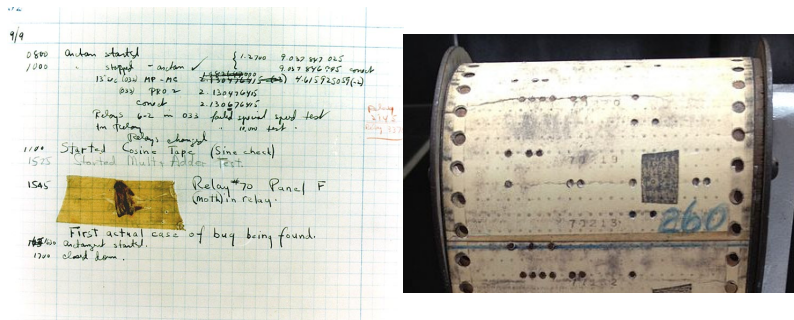 9/9
0800 Antan started
1000 " stopped - antan ✓ { 1.2700 9.037 847 025
9.037 846 795 conect
13"uc (032) MP - MC 2.130476415 4.615925059(-2)
(033) PRO 2 2.130476415
conect 2.130676415
Relays 6-2 in 033 failed special speed test
in Relay " 10.000 test "
Relays changed
1100 Started Cosine Tape (Sine check)
1525 Started Mult+Adder Test.
1545 Relay #70 Panel F
(moth) in relay.
First actual case of bug being found.
1630 antangent started.
1700 closed down.
Relay
70219
72213
260